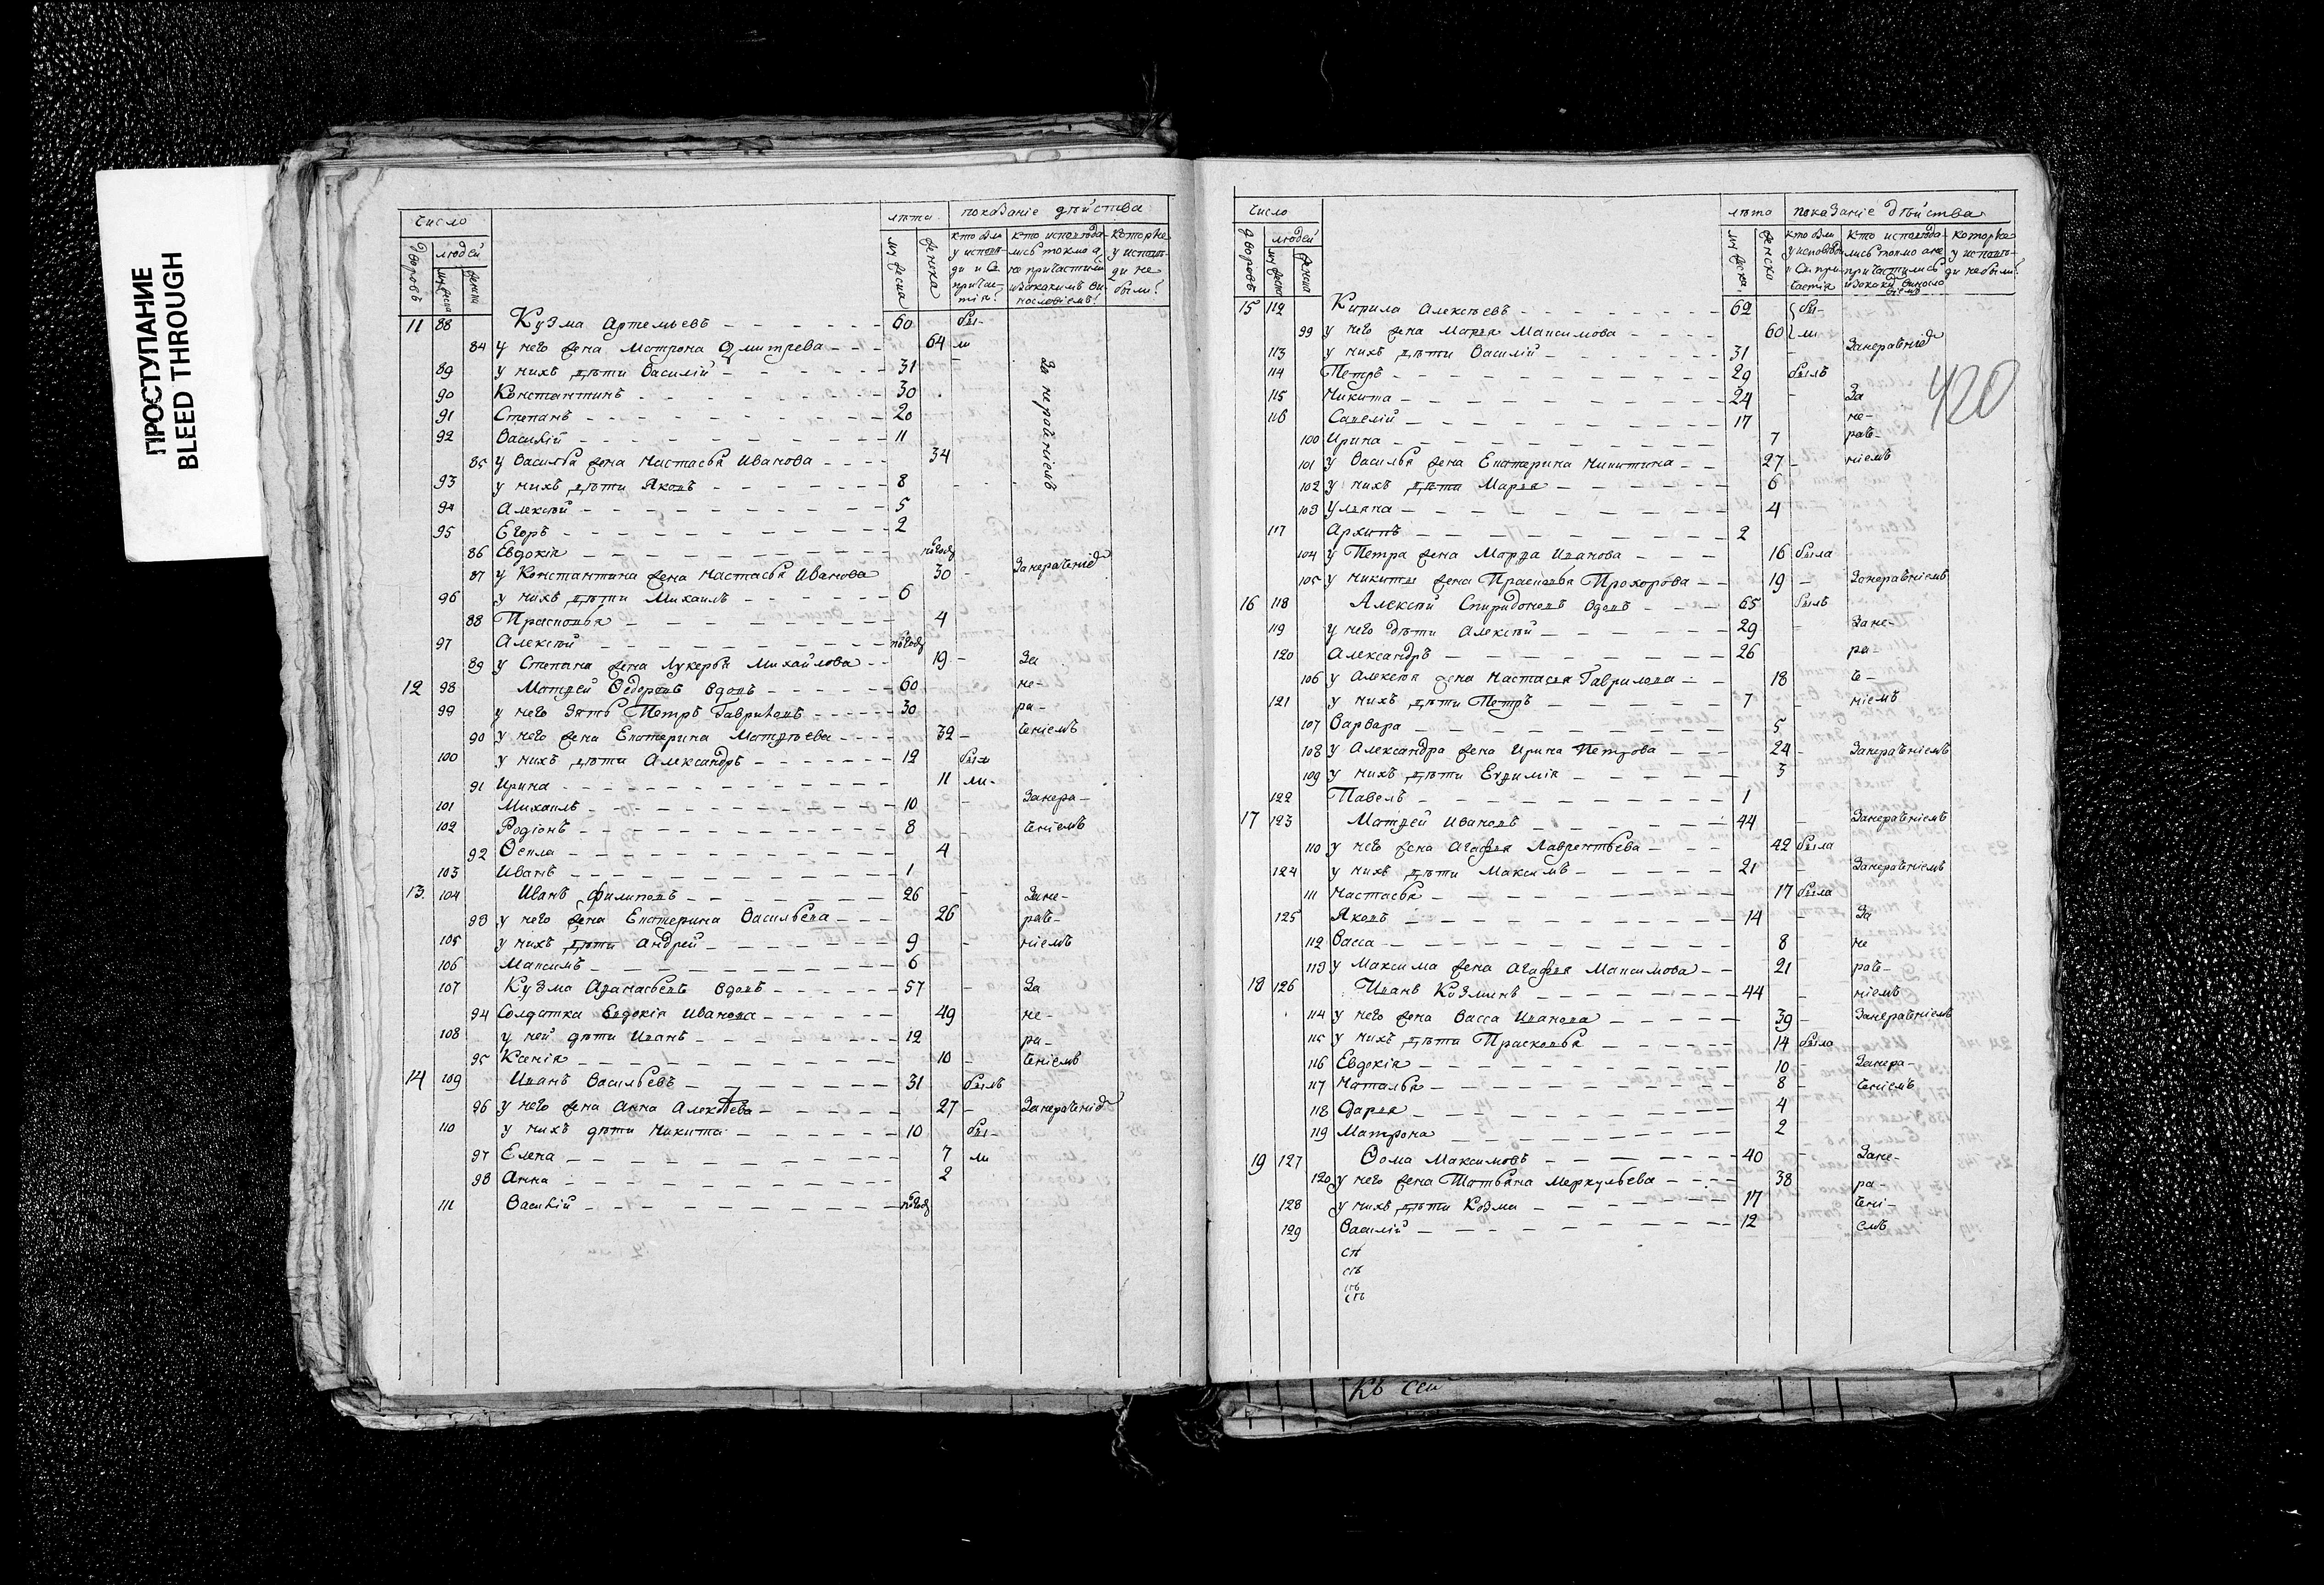 ПРОСТУПАНИЕ
BLEED THROUGH
число
лѣта
показаніе дѣйства
дворовъ
людей
мужеска
женска
мужеска
женска
11 88 Кузма Артемьевъ 60 бы-
84 у него жена Матрона Дмитрева 64 ли
89 у нихъ дѣти Василій 31
За нерачніемъ
90 Константинъ 30
91 Степанъ 20
92 Василій 11
85 у Василья жена Настасья Иванова 34
93 у нихъ дѣти Яковъ 8
94 Алексѣй 5
95 Егоръ 2
86 Евдокія полгод
87 у Константина жена Настасья Иванова 30 Занерачніе
96 у нихъ дѣти Михаилъ 6
88 Прасковья 4
97 Алексѣй полгод
89 у Степана жена Лукерья Михайлова 19 За
12 98 Матвей Ѳедоровъ вдовъ 60 не-
99 у него зять Петръ Гавриловъ 30 ра-
90 у него жена Екатерина Матвѣева 32 ченіемъ
100 у нихъ дѣти Александръ 12 бы
91 Ирина 11 ли-
101 Михаилъ 10 Занера-
102 Родіонъ 8 ченіемъ
92 Ѳекла 4
103 Иванъ 1
13. 104 Иванъ Филиповъ 26 Зане-
93 у него жена Екатерина Васильева 26 рач-
105 у нихъ дѣти Андрей 9 ніемъ
106 Максимъ 6
107 Кузма Афанасьевъ вдовъ 57 За
94 Солдатка Евдокія Иванова 49 не-
108 у ней дѣти Иванъ 12 ра-
95 Ксенія 10 ченіемъ
14 109 Иванъ Васильевъ 31 былъ
96 у него жена Анна Алексѣева 27 Занераченіе
110 у нихъ дѣти Никита 10 бы-
97 Елена 7 ли
98 Анна 2
111 Василій полгод
число
лѣта
показаніе дѣйства
дворовъ
людей
мужеска
женска
мужеска
женска
420
15 112 Кирила Алексѣевъ 62 бы-
99 у него жена Марья Максимова 60 ли
113 у нихъ дѣти Василій 31 Занерачніе
114 Петръ 29 былъ
115 Никита 24 За
116 Савелій 17 не-
100 Ирина 7 рач-
101 у Василья жена Екатерина Никитина 27 ніемъ
102 у нихъ дѣти Марья 6
103 Ульяна 4
117 Архипъ 2
104 у Петра жена Марфа Иванова 16 была
105 у Никиты жена Прасковья Прохорова 19 Занерачніемъ
16 118 Алексѣй Спиридоновъ вдовъ 65 былъ
119 у него дѣти Алексѣй 29 Зане-
120 Александръ 26 ра-
106 у Алексѣя жена Настасья Гаврилова 18 ч-
121 у нихъ дѣти Петръ 7 ніемъ
107 Варвара 5
108 у Александра жена Ирина Петрова 24 Занерачніемъ
109 у нихъ дѣти Евдимія 3
122 Павелъ 1
17 123 Матвей Ивановъ 44 Занерачніемъ
110 у него жена Агафья Лаврентьева 42 была
124 у нихъ дѣти Максимъ 21 Занерачніемъ
111 Настасья 17 была
125 Яковъ 14 За
112 Васса 8 не
113 у Максима жена Агафья Максимова 21 рач-
18 126 Иванъ Козминъ 44 ніемъ
114 у него жена Васса Иванова 39 Занерачніемъ
115 у нихъ дѣти Прасковья 14 была
116 Евдокія 10 Занера-
117 Наталья 8 ченіемъ
118 Дарья 4
119 Матрона 2
19 127 Ѳома Максимовъ 40 Зане-
120 у него жена Татьяна Меркульева 38 ра-
128 у нихъ дѣти Козма 17 чені-
129 Василій 12 емъ
Къ сей